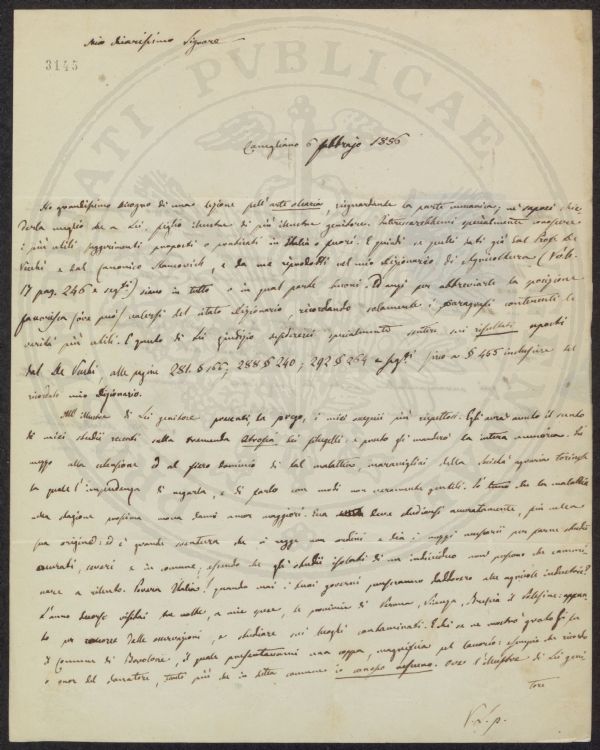 Mio chiarissimo Signore
3145
PVBLICAE
Conegliano 6 febbrajo 1856
Ho grandissimo bisogno di una lezione sull'arte olearia, risguardante la parte meccanica; nè saprei chie-
derla meglio che a Lei, figlio illustre di più illustre genitore. Interesserebbemi specialmente conoscere
i più utili suggerimenti proposti o praticati in Italia o fuori. E quindi se quelli dati già dal Prof. De
Vecchi e dal canonico Stancovich, e da me riprodotti nel mio Dizionario di Agricoltura (Vol.
17 pag. 246 e segti) siano in tutto o in qual parte buoni. Ed anzi per abbreviarle la posizione
favorisca (ove può) valersi del citato Dizionario, ricordando solamente i paragrafi contenenti le
verità più utili. E quanto di Lei giudizio desidererei specialmente sentire sui risultati esposti
dal De Vecchi alle pagine 281 § 166; 288 § 240; 292 § 264 e segti sino a § 455 inclusive del
ricordato mio Dizionario.
All'illustre di Lei genitore presenti, La prego, i miei ossequii più rispettosi. Egli avrà avuto il sunto
di miei studii recenti sulla tremenda Atrofia dei filugelli e presto gli manderò la intera memoria. In
mezzo alla estensione ed al fiero dominio di tal malattia, maravigliai della Società agraria
la quale l' di riguarda, e di parlo con modi non veramente gentili. Io temo che la malattia
nella stagione prossima rechi danni ancor maggiori. Essa deve studiarsi accuratamente, più nella
sua origine: ed è grande sventura che ci regge non ordini e dia i mezzi necessarii per farne studii
accurati, severi e in comune, essendo che gli studii isolati di un individuo non possono che cammi-
nare a rilento. Povera Italia! quando mai i tuoi governi penseranno dabbenvero alle agricole industrie?
L'anno decorso visitai tre volte, a mie spese, le provincie di Verona, Vicenza, Brescia il Polesine: appun-
to per delle osservazioni, e studiare sui luoghi contaminati. E chi se ne mostrò grato fu
il Comune di Bovolone, il quale presentavami una coppa, magnifica pel lavoro: esempio che ricordo
a onor del donatore, tanto più che in detto comune io conosco nessuno. Ove l'illustre di Lei geni
tore
V. S. p.